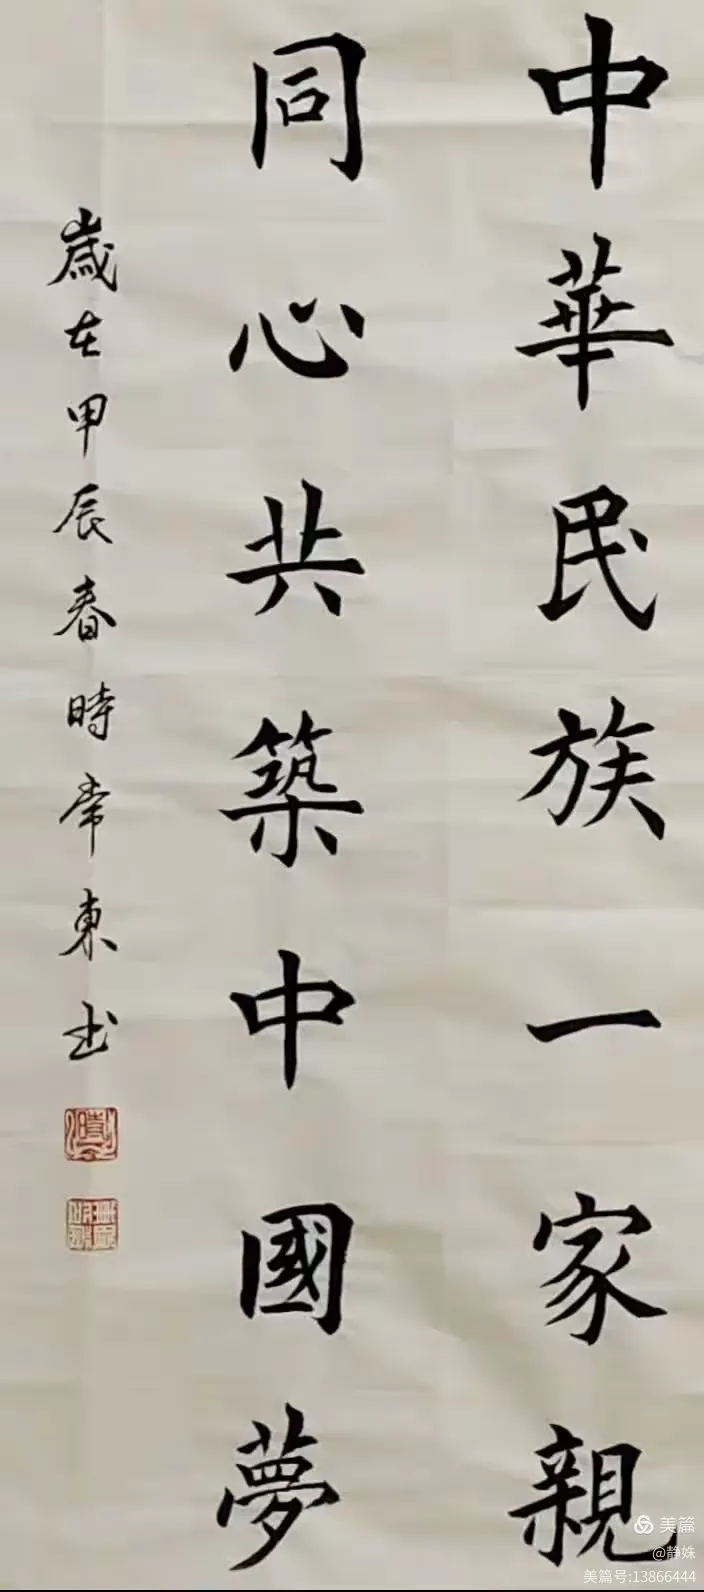 中華民族一家親
同心共築中國夢
歲在甲辰春時常東书
美篇
@静姝
美篇号:13866444